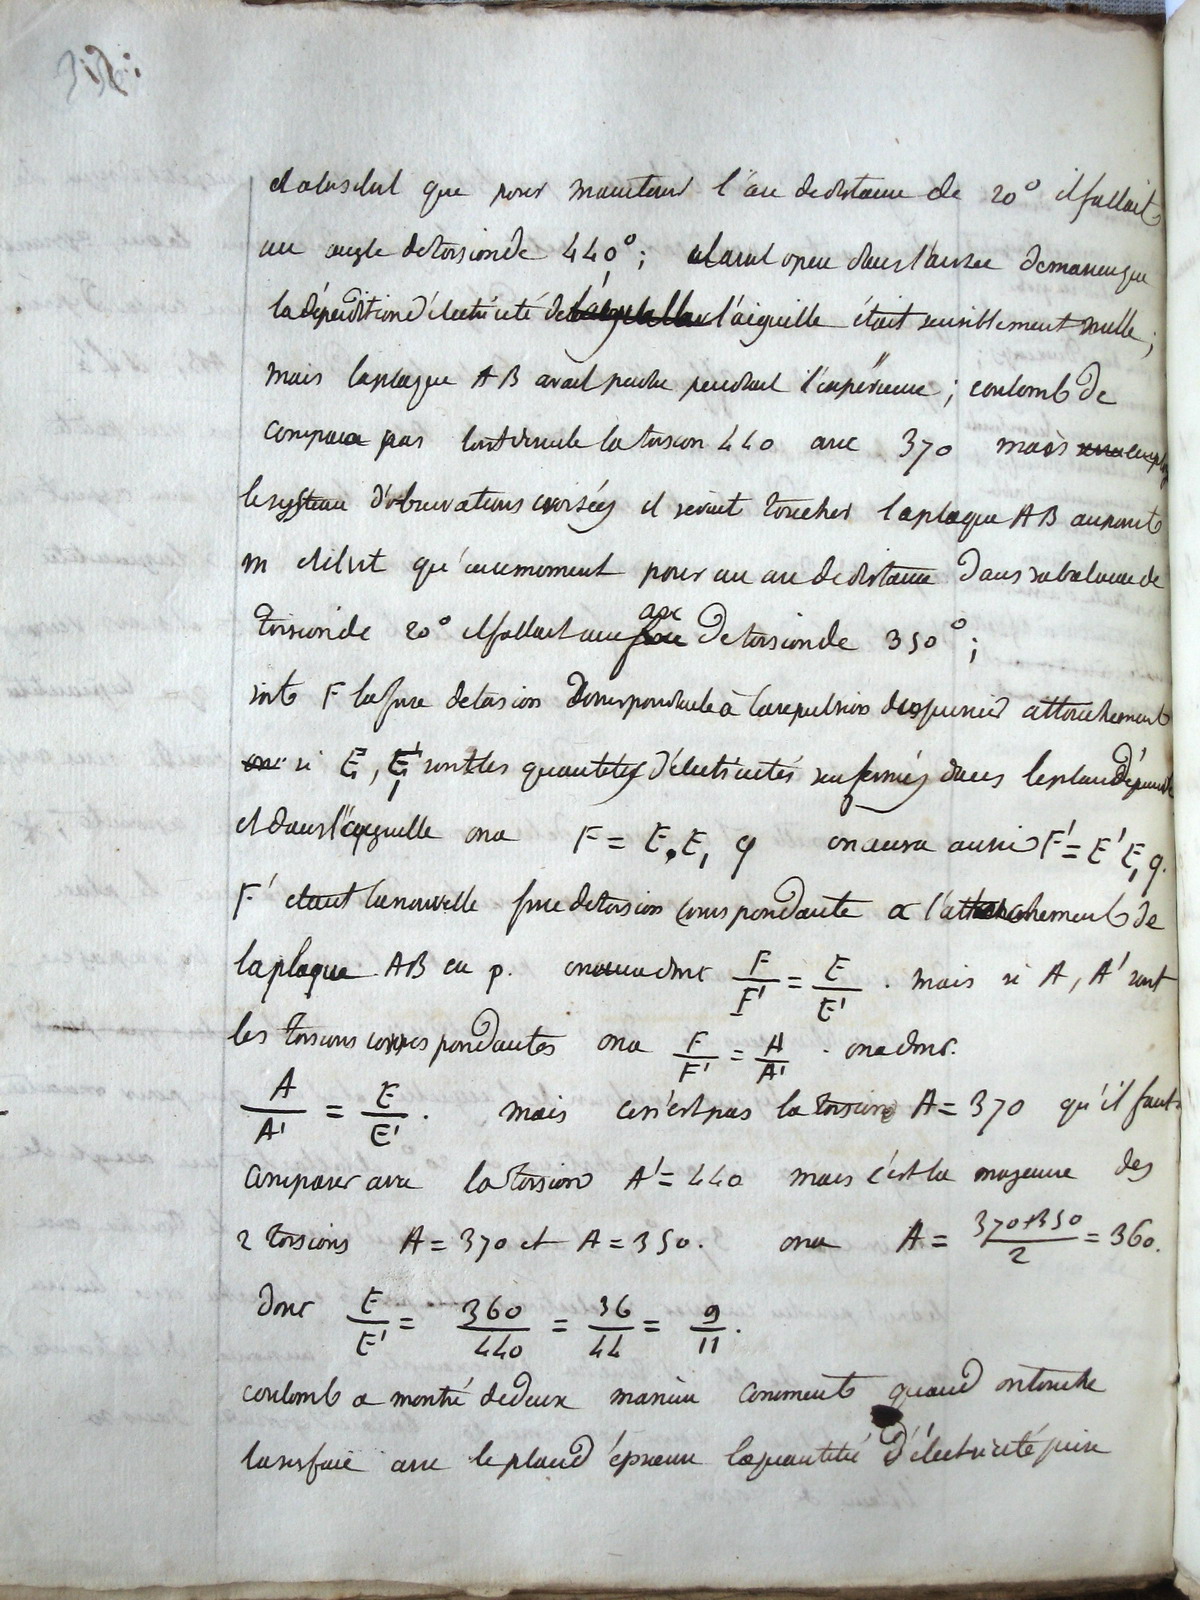 et alors vit que pour maintenir l'arc de distance de 20° il fallait
un angle de torsion de 440°; il avait opéré dans l'air sec de manière que
la déperdition d'électricité de l'aiguille l'aiguille était sensiblement nulle;
mais la plaque AB avait perdu pendant l'expérience; coulomb de
compara pas tout de suite la torsion 440 avec 370 mais
le système d'observations croisées il revint toucher la plaque AB au point
m et il vit qu'en ce moment pour un arc de distance dans sa balance de
torsion de 20° il fallait une force arc de torsion de 350°;
soit F la force de torsion correspondante à la repulsion du premier attouchement
on si E, E, sont les quantités d'électricités renfermées dans le plan d'épreuve
et dans l'aiguille on a F = E.E, φ on aura aussi F' = E'E, φ.
F' etant la nouvelle force de torsion correspondante a l'attouchement de
la plaque AB en p. on aura donc F/F' = E/E'. mais si A, A' sont
les torsions correspondantes on a F/F' = A/A'. on a donc.
A/A' = E/E'. mais ce n'est pas la torsion A = 370 qu'il faut
comparer avec la torsion A' = 440 mais c'est la moyenne des
2 torsions A = 370 et A = 350. on a A = 370+350/2 = 360.
donc E/E' = 360/440 = 36/44 = 9/11.
coulomb a montré de deux manière comment quand on touche
la surface avec le plan d'épreuve la quantité d'électricité prise